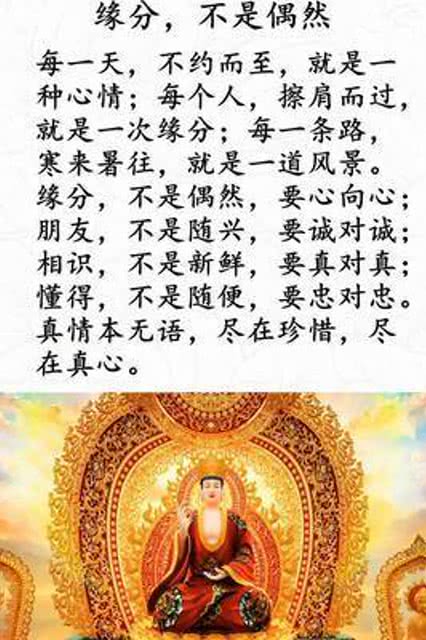 缘分，不是偶然
每一天，不约而至，就是一
种心情；每个人，擦肩而过，
就是一次缘分；每一条路，
寒来暑往，就是一道风景。
缘分，不是偶然，要心向心；
朋友，不是随兴，要诚对诚；
相识，不是新鲜，要真对真；
懂得，不是随便，要忠对忠。
真情本无语，尽在珍惜，尽
在真心。